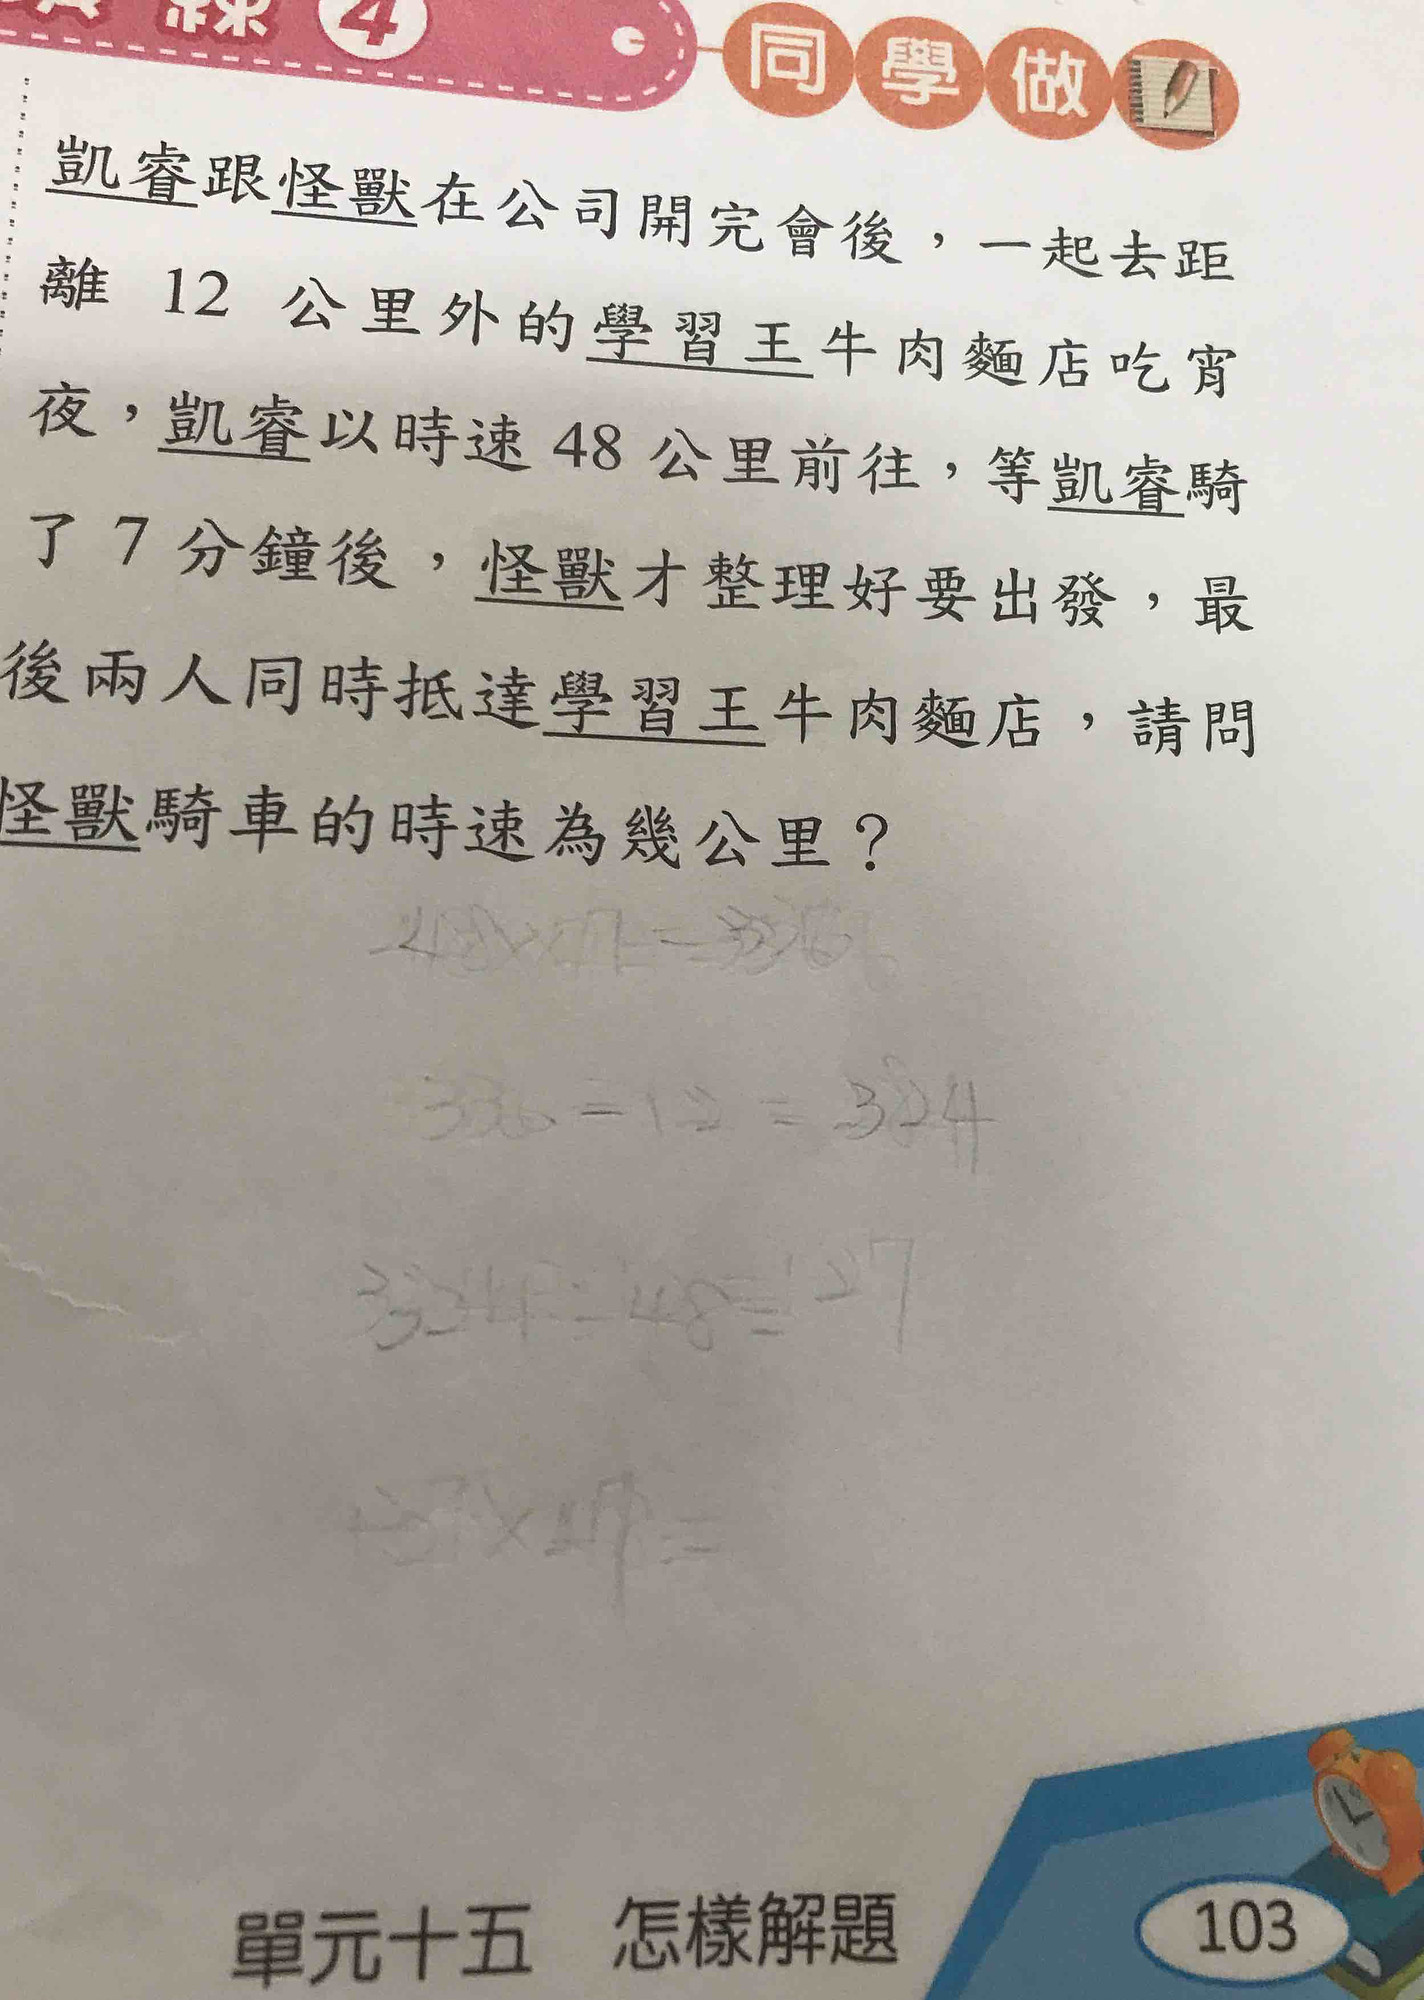 練 4 同學做
凱睿跟怪獸在公司開完會後，一起去距
離 12 公里外的學習王牛肉麵店吃宵
夜，凱睿以時速 48 公里前往，等凱睿騎
了 7 分鐘後，怪獸才整理好要出發，最
後兩人同時抵達學習王牛肉麵店，請問
怪獸騎車的時速為幾公里？
單元十五 怎樣解題 103